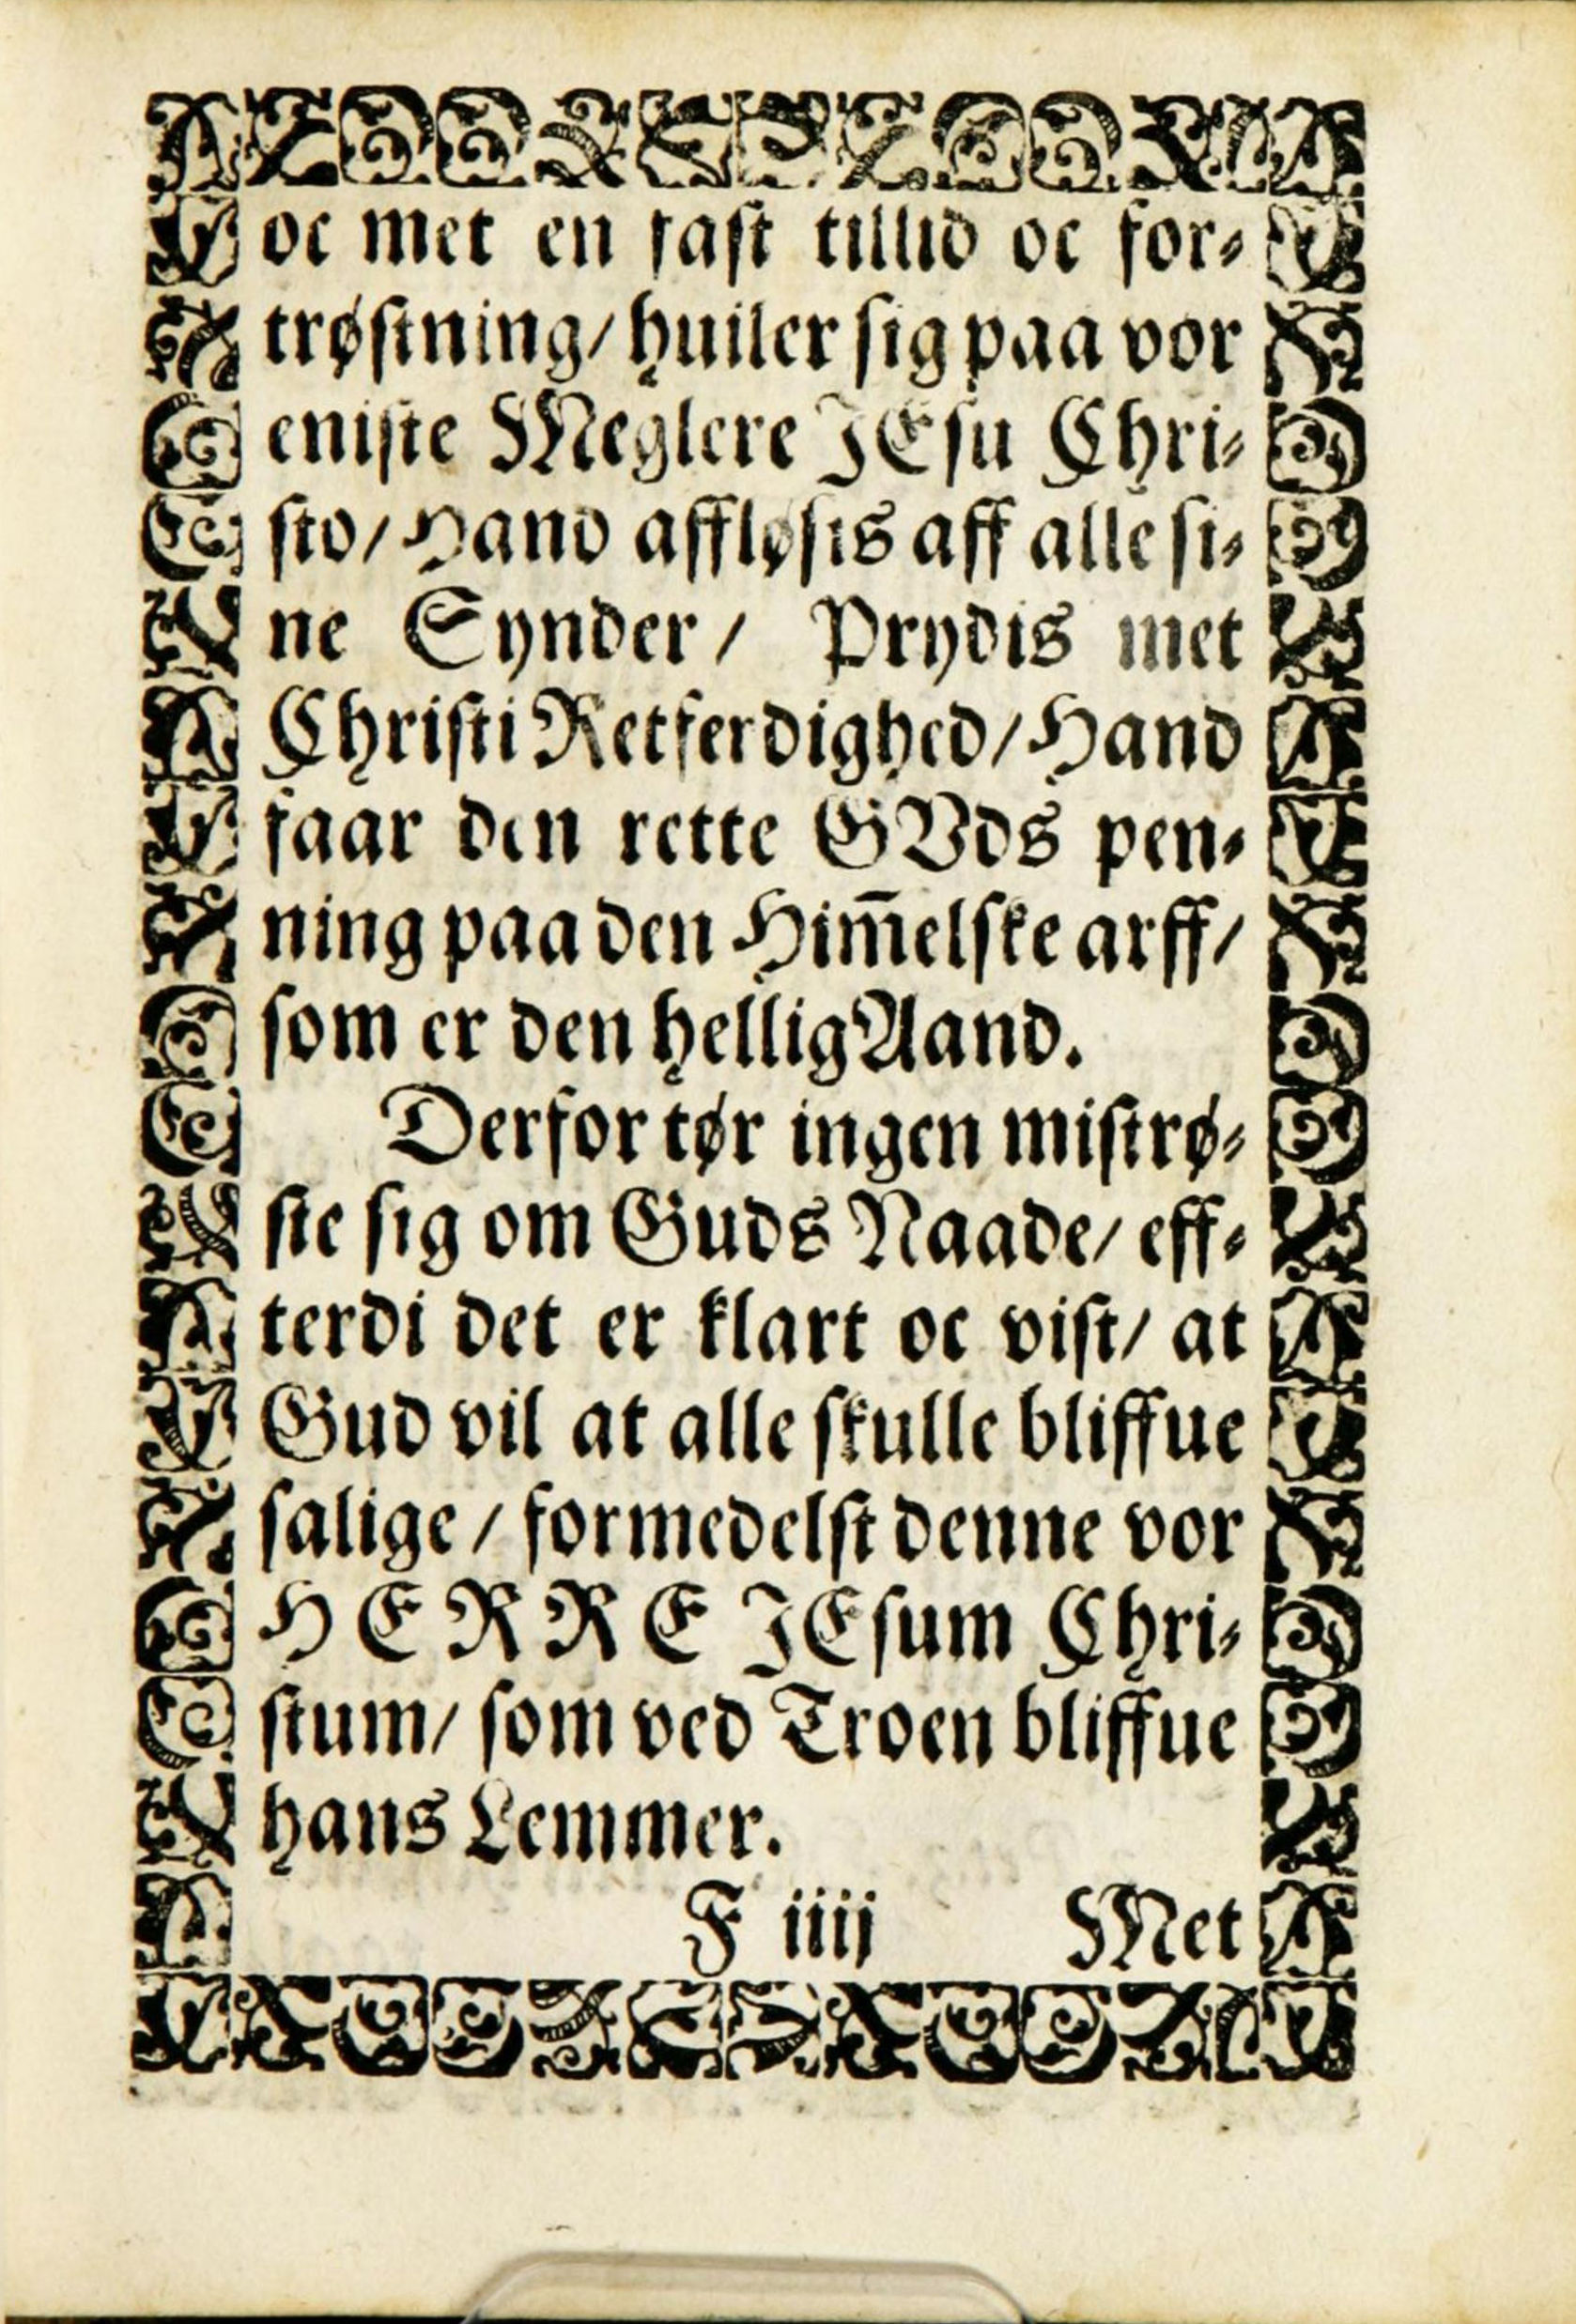 oc met en fast tillid oc for⸗
trøstning/ huiler sig paa vor
eniste Meglere JEsu Chri⸗
sto/ Hand affløsis aff alle si⸗
ne Synder/ Prydis met
Christi Retferdighed/ Hand
faar den rette GVds pen⸗
ning paa den Him̅elske arff/
som er den hellig Aand.
Derfor tør ingen mistrø⸗
ste sig om Guds Naade/ eff⸗
terdi det er klart oc vist/ at
Gud vil at alle skulle bliffue
salige/ formedelst denne vor
HERRE JEsum Chri⸗
stum/ som ved Troen bliffue
hans Lemmer.
F iiij Met